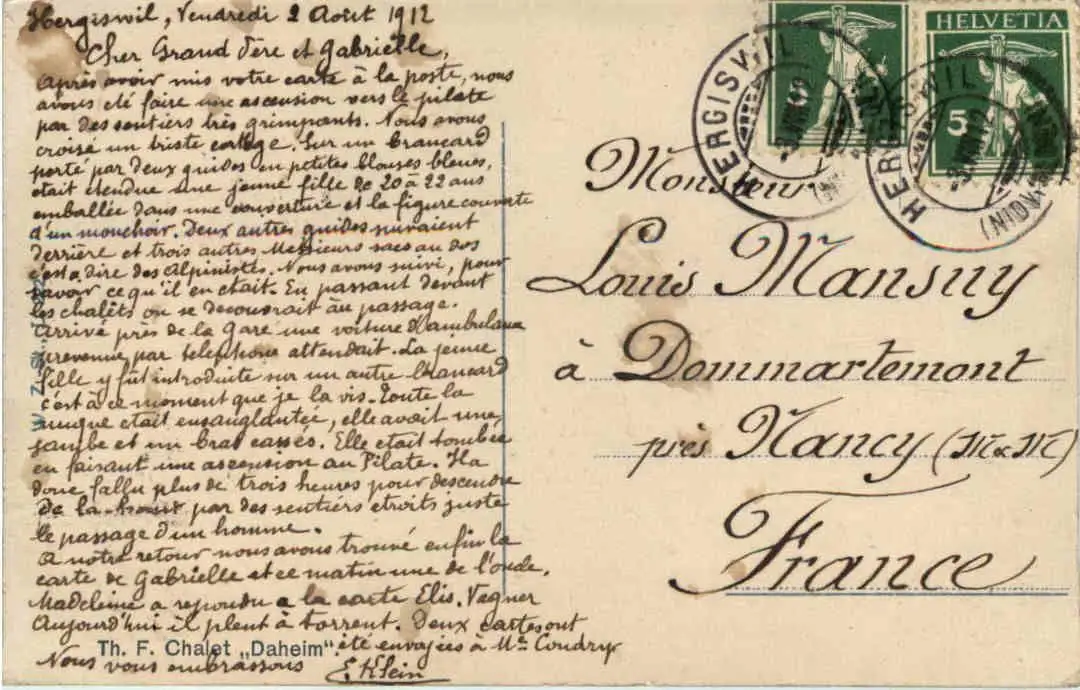 Hergiswil, Vendredi 2 Août 1912
Cher Grand Père et Gabrielle,
Après avoir mis votre carte à la poste, nous
avons été faire une ascension vers le pilate
par des sentiers très grimpants. Nous avons
croisé un triste cortège. Sur un brancard
porté par deux guides en petites blouses bleues,
était étendue une jeune fille de 20 à 22 ans
emballée dans une couverture et la figure couverte
d'un mouchoir. Deux autres guides suivaient
derrière et trois autres Messieurs sacs au dos
c'est à dire des Alpinistes. Nous avons suivi, pour
savoir ce qu'il en était. En passant devant
les chalêts on se decouvrait au passage.
Arrivé près de la gare une voiture d'ambulance
prevenue par telephone attendait. La jeune
fille y fût introduite sur un autre brancard
c'est à ce moment que je la vis. Toute la
nuque etait ensanglantée, elle avait une
jambe et un bras cassés. Elle etait tombée
en faisant une ascension au Pilate. Il a
donc fallu plus de trois heures pour descendre
de la-haut par des sentiers etroits juste
le passage d'un homme.
A notre retour nous avons trouvé enfin la
carte de Gabrielle et ce matin une de l'oncle.
Madeleine a repondu a la carte Elis. Vagner
Aujourd'hui il pleut à torrent. Deux cartes ont
été envoyées à Me
Nous vous embrassons E. Klein
Th. F. Chalet „Daheim".
HELVETIA
5
HERGISWIL
HERGISWIL
(NIDW.)
Monsieur
Louis Mansuy
à Dommartemont
près Nancy (M & M)
France